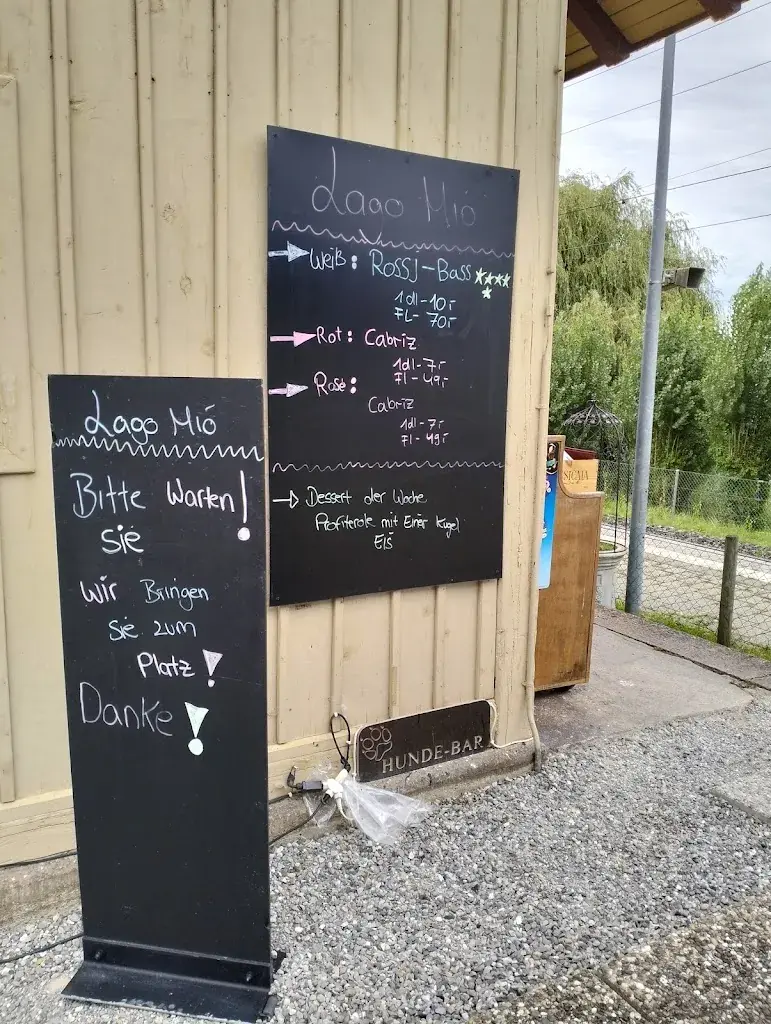 Lago Mió
Weiß: ROSSJ-BASS
1dl-10,-
FL- 70,-
Rot: Cabriz
1dl-7,-
Fl-49,-
Rosé:
Cabriz
1dl-7,-
Fl-49,-
Dessert der Woche
Profiterole mit Einer Kugel
EIS
Lago Mió
Bitte Warten!
Sie
Wir Bringen
Sie zum
Platz!
Danke!
HUNDE-BAR